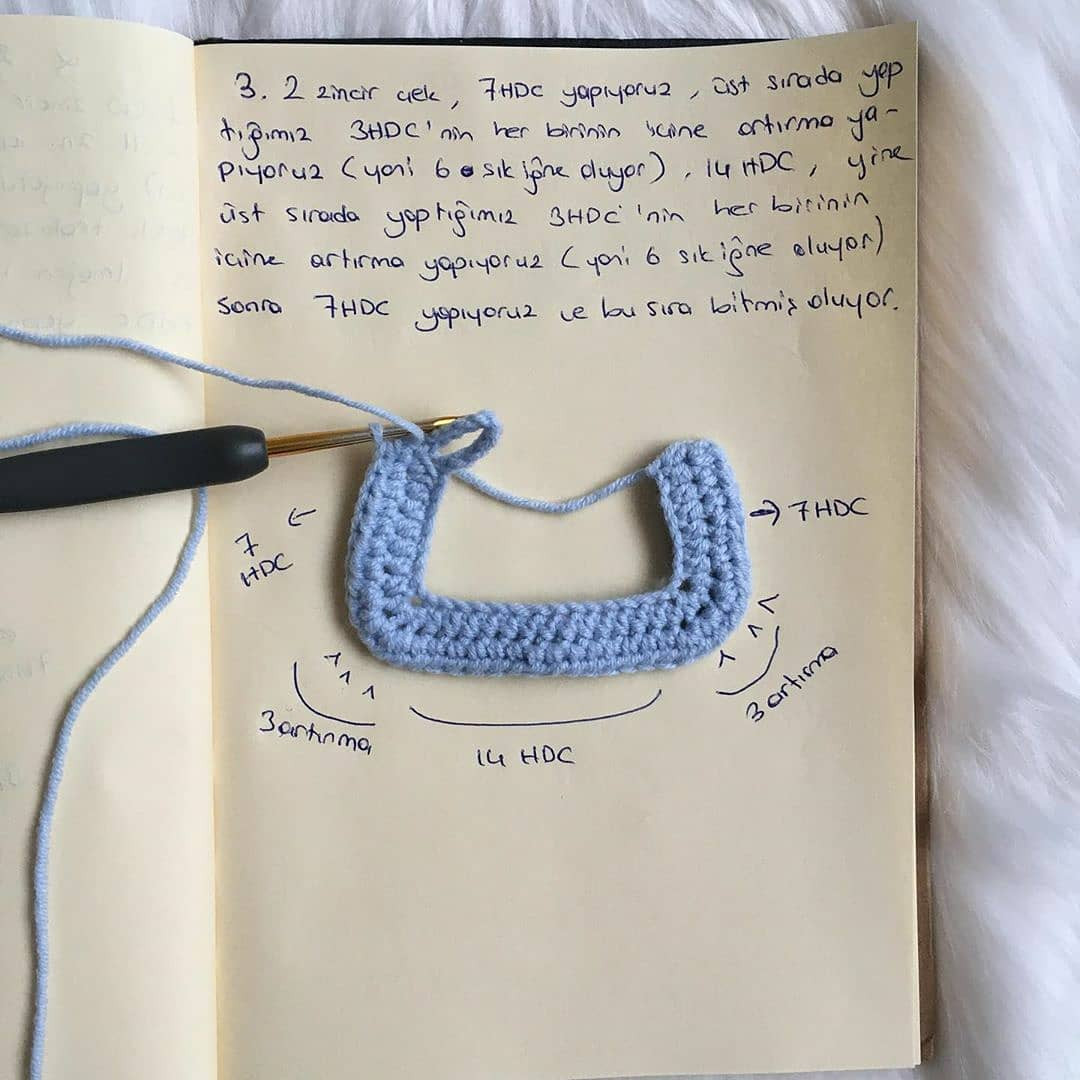 3. 2 zincir çek, 7HDC yapıyoruz, üst sırada yap
tığımız 3HDC'nin her birinin içine artırma ya-
pıyoruz (yani 6 sık iğne oluyor), 14 HDC, yine
üst sırada yaptığımız 3HDC'nin her birinin
içine artırma yapıyoruz (yani 6 sık iğne oluyor)
sonra 7HDC yapıyoruz ve bu sıra bitmiş oluyor.
7
HDC
→ 7HDC
3 artırma
14 HDC
3 artırma